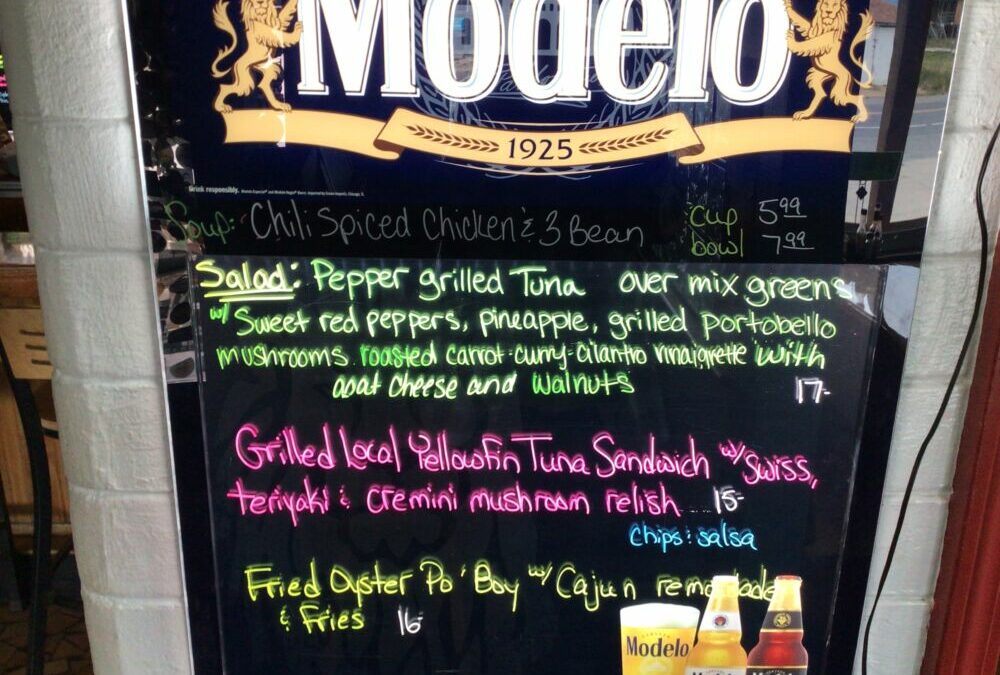 Modelo
1925
Drink responsibly.
Soup: Chili Spiced Chicken & 3 Bean cup 5.99
bowl 7.99
Salad: Pepper grilled Tuna over mix greens
w/ Sweet red peppers, pineapple, grilled portobello
mushrooms roasted carrot-curry-cilantro vinaigrette with
goat cheese and walnuts 17-
Grilled Local Yellowfin Tuna Sandwich w/ Swiss,
teriyaki & cremini mushroom relish 15-
chips & salsa
Fried Oyster Po' Boy w/ Cajun remoulade
& Fries 16-
Modelo